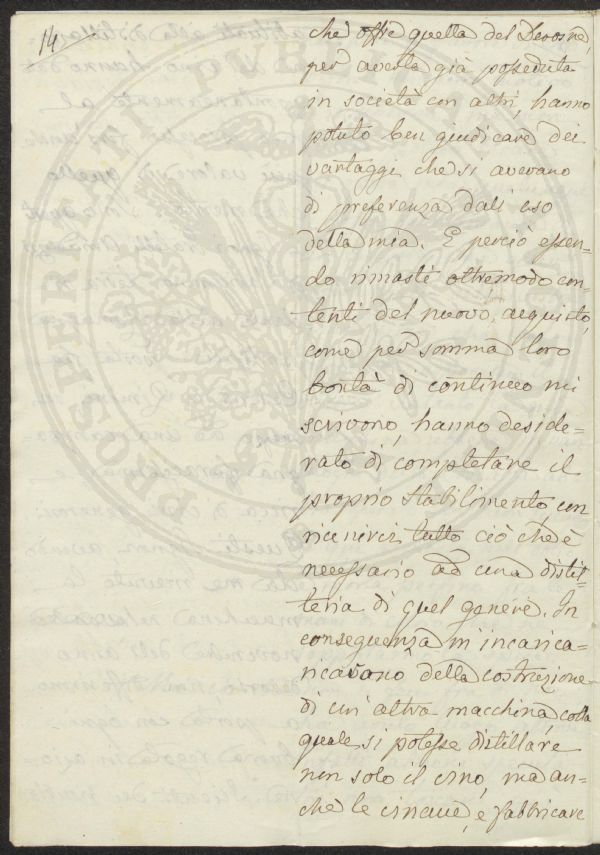 14
che offre quella del Derosne,
per averla già posseduta
in società con altri, hanno
potuto ben giudicare dei
vantaggi che si avevano
di preferenza dall'uso
della mia. E perciò essen-
do rimasti oltremodo con-
tenti del nuovo acquisto,
come per somma loro
bontà di continuo mi
scrivono, hanno deside-
rato di completare il
proprio stabilimento, con
riunirvi tutto ciò che è
necessario ad una distil-
leria di quel genere. In
conseguenza m'incarica-
ricavano della costruzione
di un'altra macchina, colla
quale si potesse distillare
non solo il vino, ma an-
che le vinacce, e fabbricare
PROSPERITATI PVBLICAE